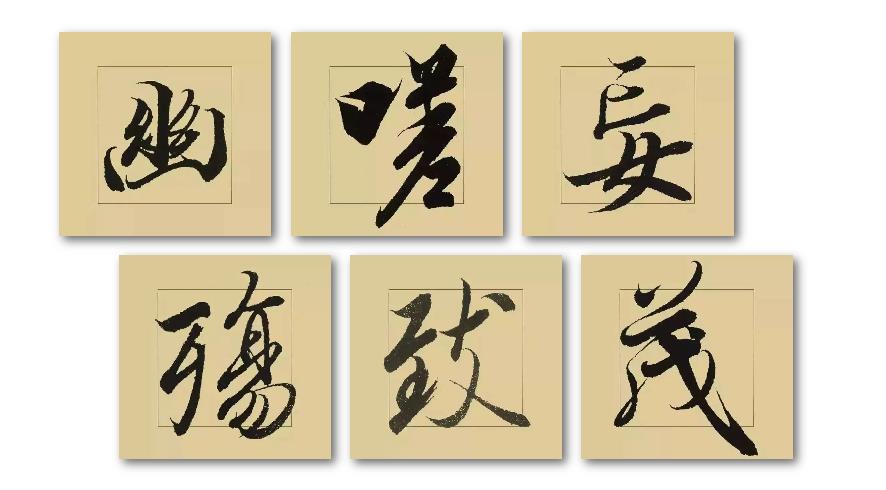 幽嗟妄
殇致茂